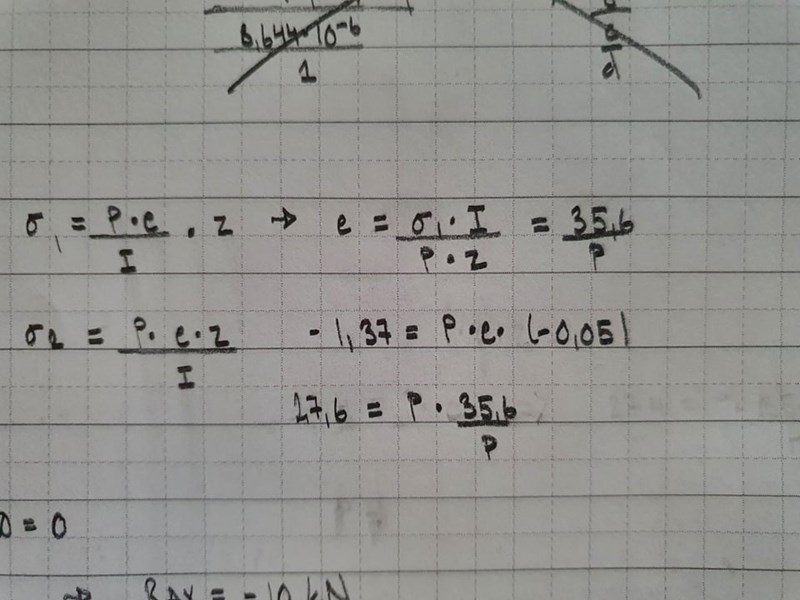 8,644·10⁻⁶ / 1
d
σ₁ = P·e / I · z → e = σ₁·I / P·z = 35,6 / P
σ₂ = P·e·z / I   -1,37 = P·e·(-0,05)
27,6 = P · 35,6 / P
= 0
→ RAx = -10 kN